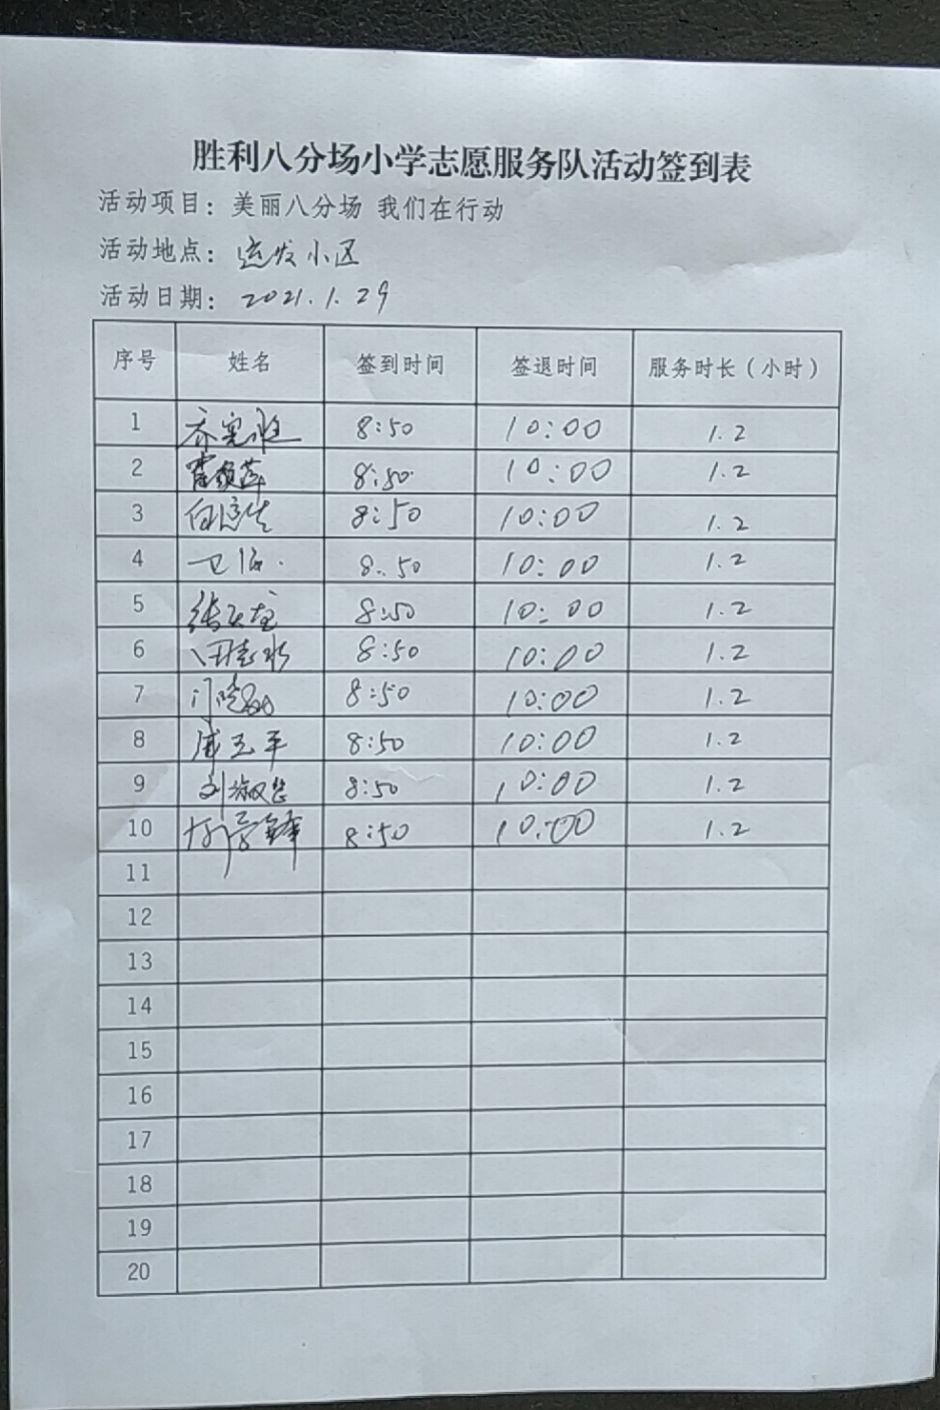 胜利八分场小学志愿服务队活动签到表
活动项目：美丽八分场 我们在行动
活动地点：运发小区
活动日期：2021.1.29
序号 姓名 签到时间 签退时间 服务时长（小时）
1 8:50 10:00 1.2
2 8:50 10:00 1.2
3 8:50 10:00 1.2
4 卫海 8:50 10:00 1.2
5 8:50 10:00 1.2
6 8:50 10:00 1.2
7 闫晓敏 8:50 10:00 1.2
8 唐玉平 8:50 10:00 1.2
9 刘淑 8:50 10:00 1.2
10 8:50 10:00 1.2
11
12
13
14
15
16
17
18
19
20